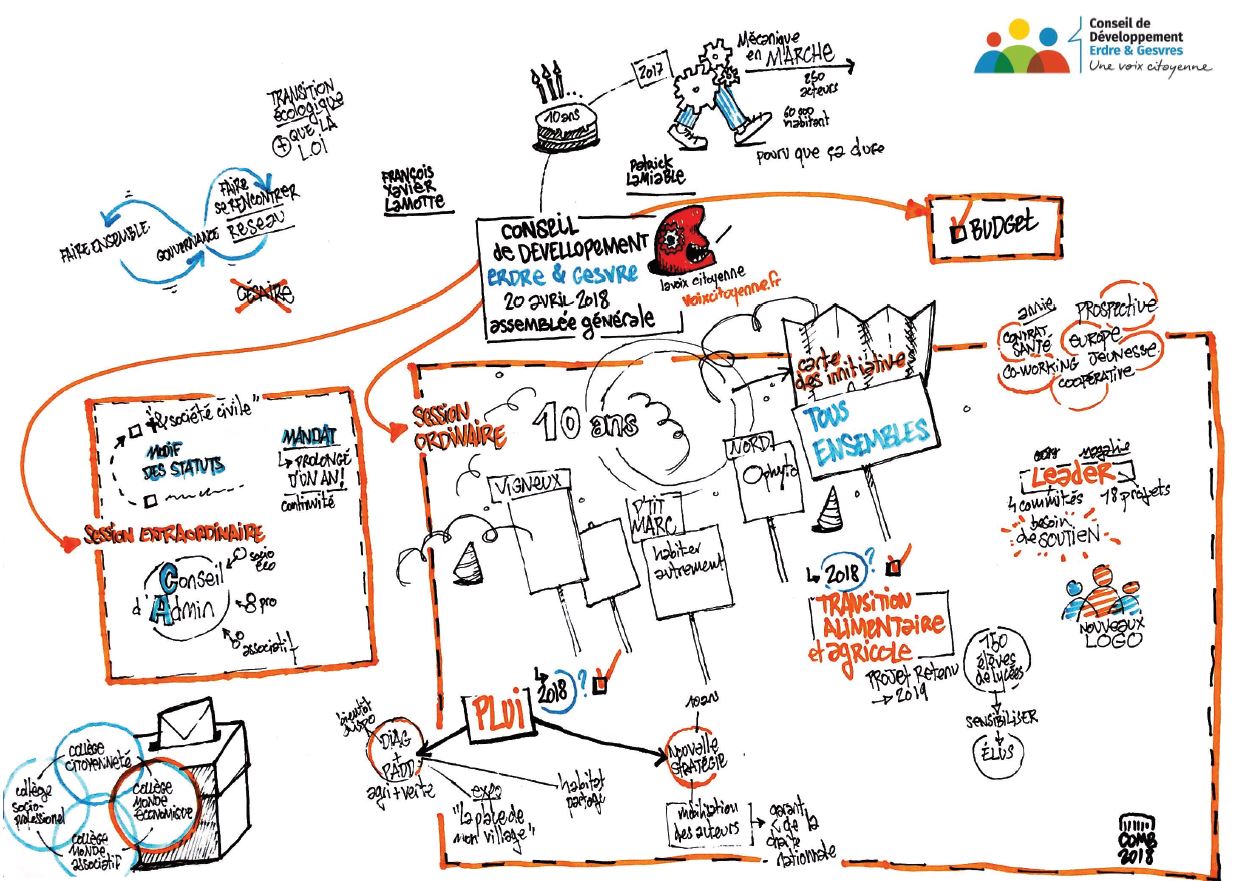 Conseil de
Développement
Erdre & Gesvres
Une voix citoyenne
2017
Mécanique
en MARCHE
250
acteurs
60 000
habitant
pourvu que ça dure
10 ans
TRANSITION
écologique
+ QUE LA
LOI
FRANÇOIS
Xavier
LAMOTTE
Patrick
LAMIABLE
FAIRE ENSEMBLE
GOUVERNANCE
FAIRE
SE RENCONTRER
RÉSEAU
CÉSAIRE
CONSEIL
de DÉVELLOPEMENT
ERDRE & GESVRE
20 avril 2018
assemblée générale
la voix citoyenne
voixcitoyenne.fr
BUDGET
"& société civile"
MODIF
DES STATUTS
MANDAT
PROLONGÉ
D'UN AN!
continuité
SESSION EXTRAORDINAIRE
Conseil
d'Admin
socio
éco
8 pro
8 associatif
SESSION
ORDINAIRE
10 ans
carte
des innitiative
TOUS
ENSEMBLES
VIGNEUX
P'TIT
MARC
habiter
autrement
NORD
Ophyto
PROSPECTIVE
CONTRAT
SANTÉ
EUROPE
CO-WORKING
JEUNESSE
COOPÉRATIVE
Leader
4 commités
18 projets
besoin
de SOUTIEN
NOUVEAUX
LOGO
2018 ?
TRANSITION
ALIMENTAIRE
et agricole
PROJET RETENU
→ 2019
150
élèves
de lycées
SENSIBILISER
ÉLUS
2018 ?
PLUi
bientôt
dispo
DIAG
+
PADD
agri + verte
expo
"la place de
mon village"
habitat
partagé
10 ans
NOUVELLE
STRATÉGIE
mobilisation
des acteurs
garant
de la
charte
nationale
collège
citoyenneté
collège
socio-
professionel
collège
monde
économique
collège
monde
associatif
COMB
2018